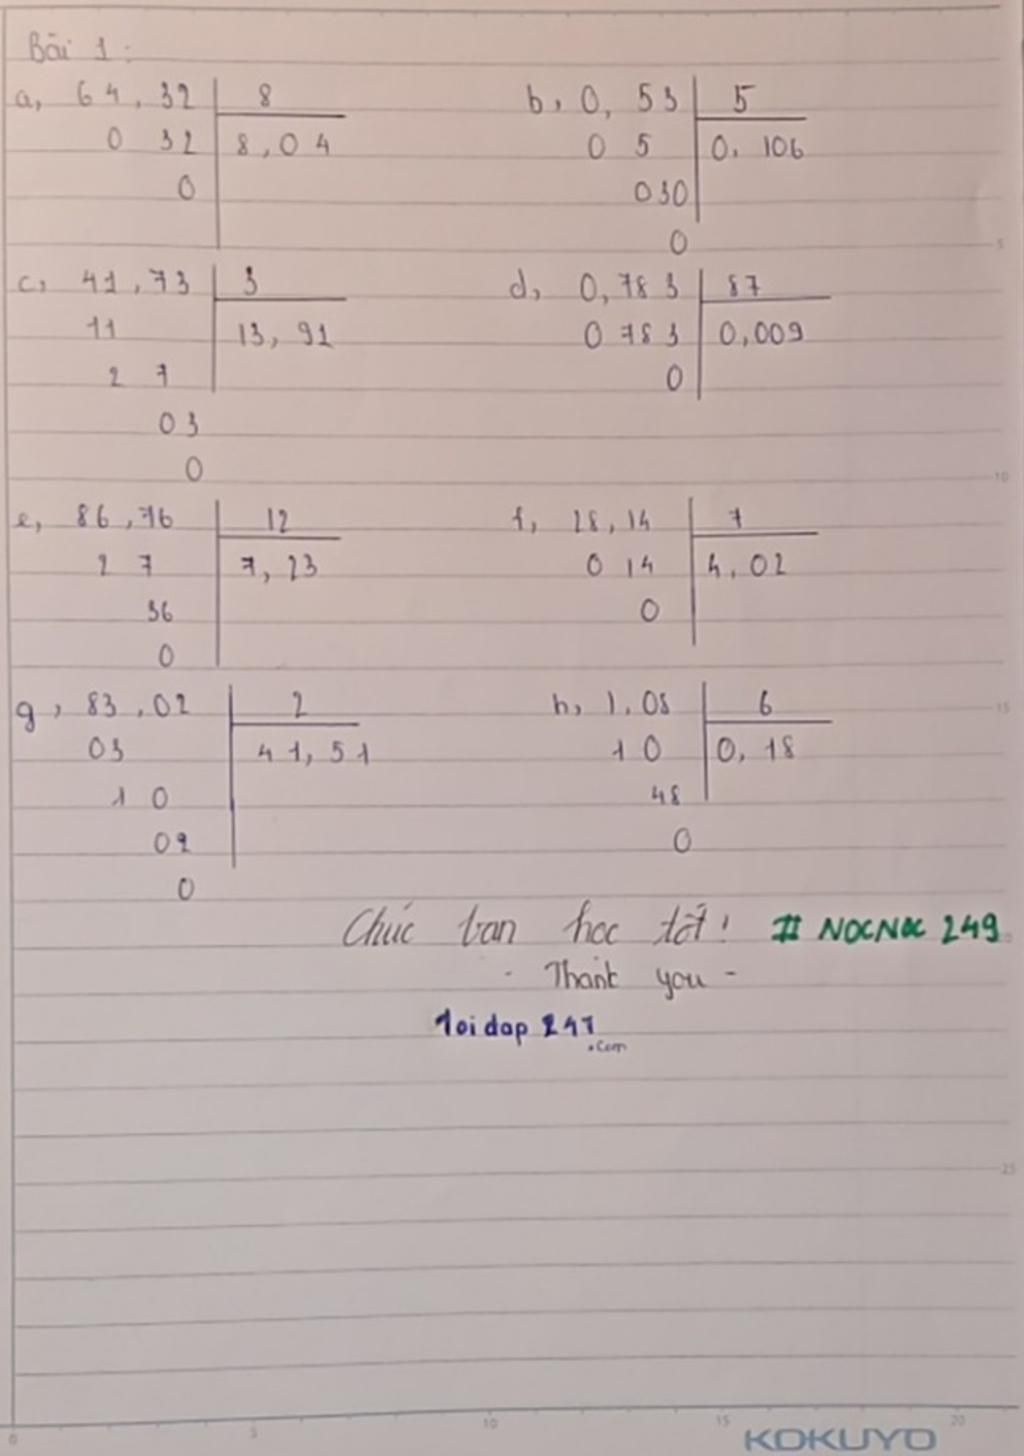 Bài 1:
a, 64,32 8 b, 0,53 5
0 32 8,04 0 5 0,106
0 030
0
c, 41,73 3 d, 0,783 87
11 13,91 0 783 0,009
2 7 0
03
0
e, 86,76 12 f, 28,14 7
2 7 7,23 0 14 4,02
36 0
0
g, 83,02 2 h, 1,08 6
03 41,51 1 0 0,18
1 0 48
02 0
0
Chúc bạn học tốt! # NOCNOC 249
- Thank you -
loidap 247
.com
5
10
15
25
0 5 10 15 20
KOKUYO